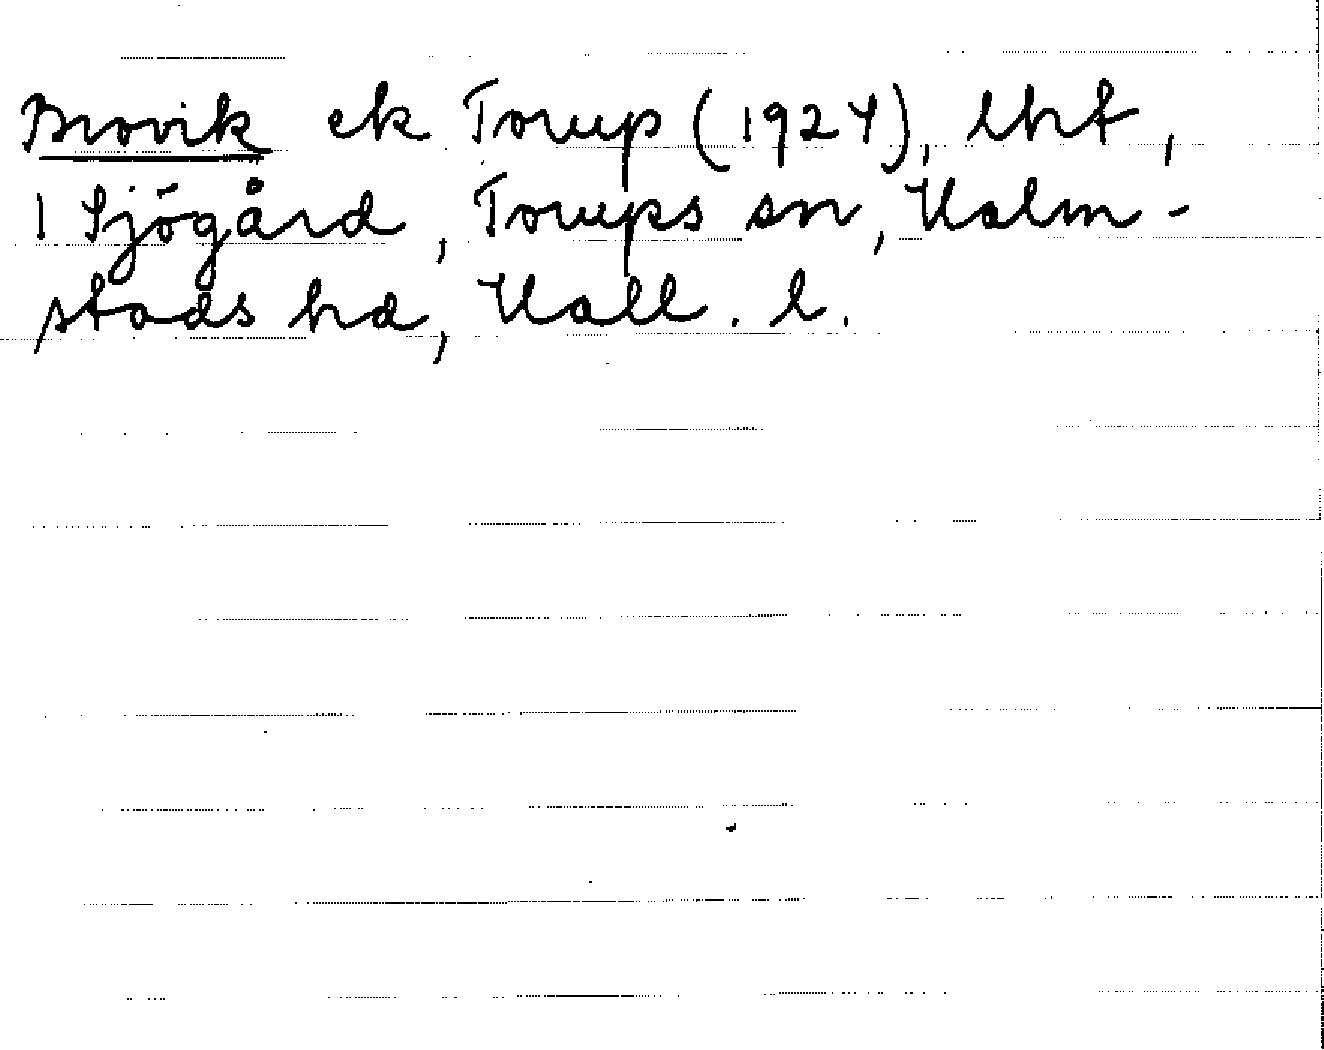 Brovik ek Torup (1924), lht,
1 Sjögård, Torups sn, Halm-
stads hd, Hall. l.